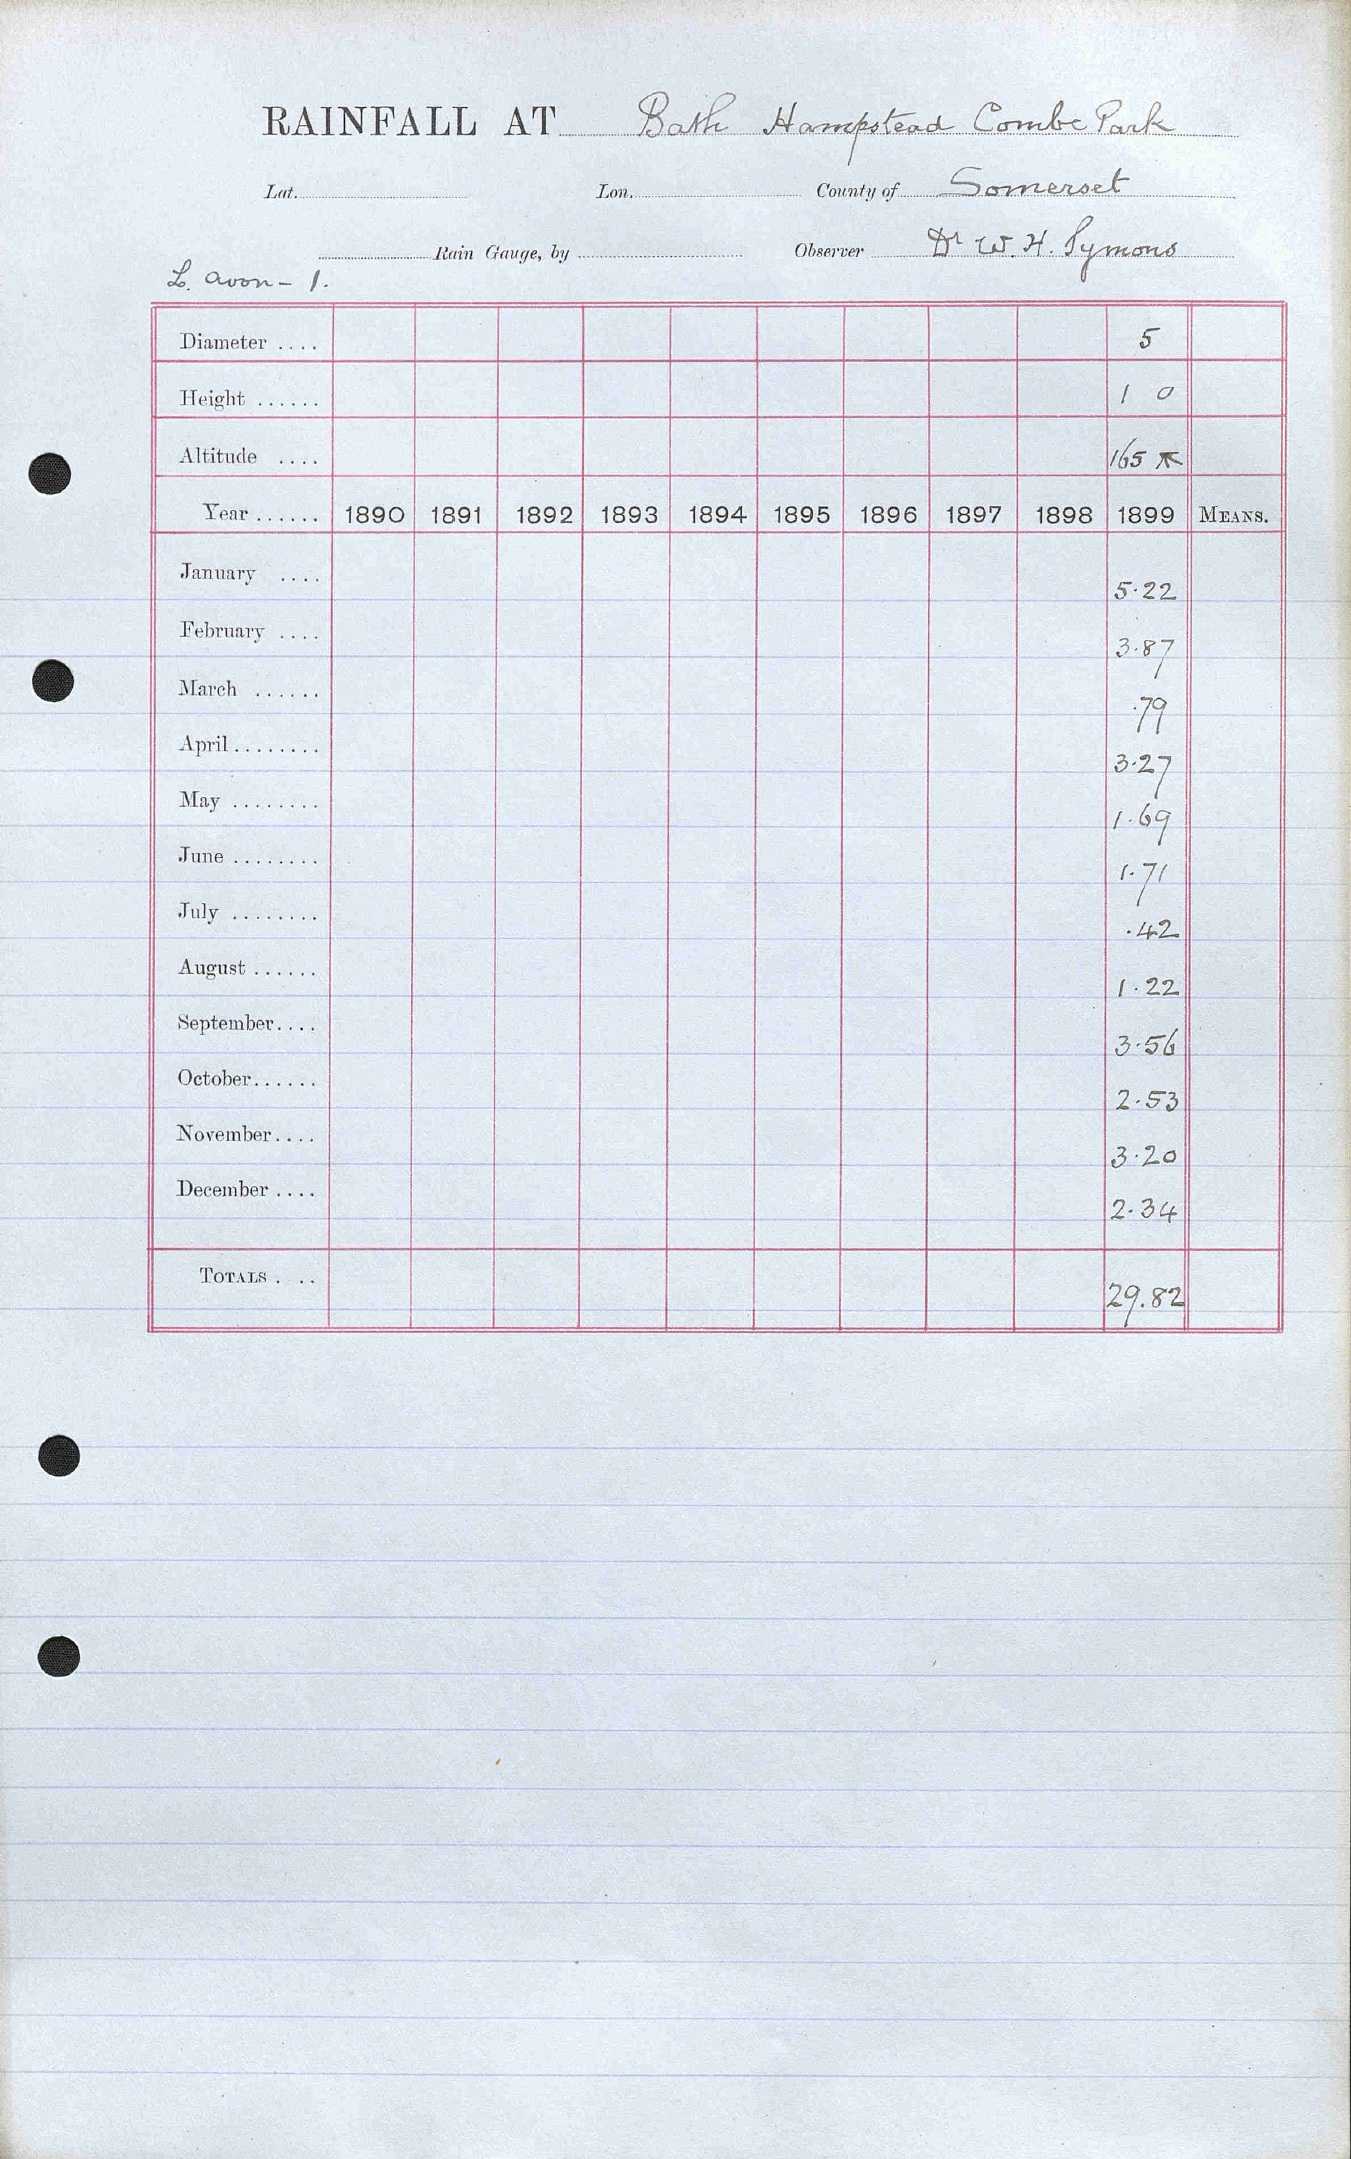 RAINFALL AT Bath Hampstead Combe Park
Lat. Lon. County of Somerset
Rain Gauge, by Observer Dr W. H. Symons
L. Avon - 1.
Diameter .... 5
Height ...... 1 0
Altitude .... 165
Year ...... 1890 1891 1892 1893 1894 1895 1896 1897 1898 1899 MEANS.
January .... 5.22
February .... 3.87
March ...... .79
April ........ 3.27
May ........ 1.69
June ........ 1.71
July ........ .42
August ...... 1.22
September.... 3.56
October...... 2.53
November.... 3.20
December .... 2.34
TOTALS . .. 29.82